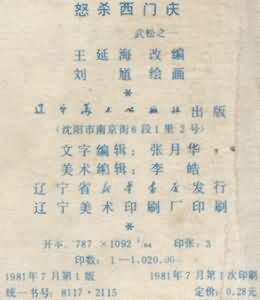 怒杀西门庆
武松之一
王延海 改编
刘 馗 绘画
*
辽宁美术出版社 出版
(沈阳市南京街6段1里2号)
文字编辑: 张月华
美术编辑: 李 皓
辽宁省新华书店 发行
辽宁美术印刷厂印刷
*
开本 787×1092 1/64 印张: 3
印数: 1—1,020,00
1981年7月第1版 1981年7月第1次印刷
统一书号: 8117·2115 定价: 0.28元